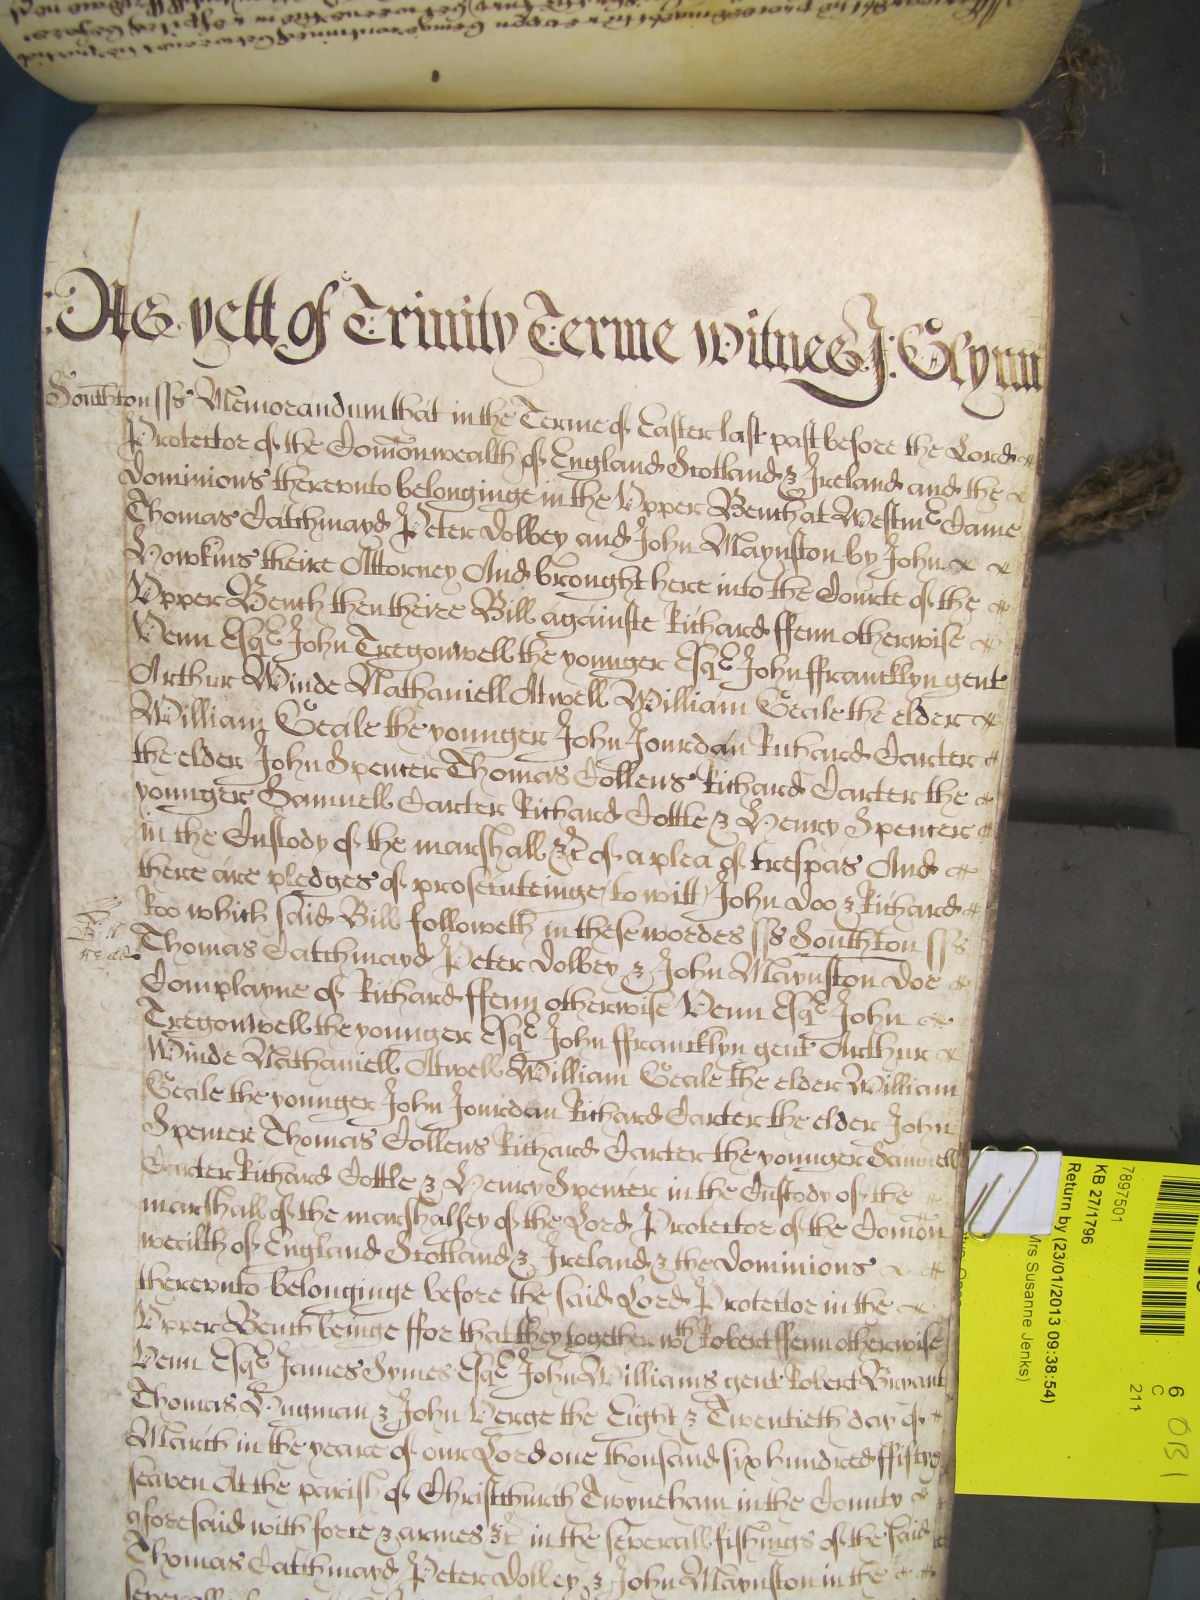 As yett of Trinity Terme Witnes J: Glynn
Southton ss Memorandum that in the Terme of Easter last past before the Lord
Protector of the Comonwealth of England Scotland & Ireland and the
dominions therevnto belonginge in the Vpper Bench at Westmr Came
Thomas Catchmayd Peter Dolbey and John Maynston by John
Howkins theire Attorney And brought here into the Courte of the
Vpper Bench then theire Bill againste Richard ffenn otherwise
Venn Esqr John Tregonwell the younger Esqr John ffrancklyn gent
Arthur Winde Nathaniell Atwell William Geale the elder
William Geale the younger John Jourdan Richard Carter
the elder John Spencer Thomas Collens Richard Carter the
younger Samuell Carter Richard Cottle & Henry Spencer
in the Custody of the marshall &c of a plea of trespas And
there are pledges of prosecuteinge to witt John Doo & Richard
Roo which said Bill followeth in these wordes ss Southton ss
Thomas Catchmayd Peter Dolbey & John Maynston doe
Complayne of Richard ffenn otherwise Venn Esqr John
Tregonwell the younger Esqr John ffrancklyn gent Arthur
Winde Nathaniell Atwell William Geale the elder William
Geale the younger John Jourdan Richard Carter the elder John
Spencer Thomas Collens Richard Carter the younger Samuell
Carter Richard Cottle & Henry Spencer in the Custody of the
marshall of the marshalsey of the Lord Protector of the Comon
wealth of England Scotland & Ireland & the Dominions
therevnto belonginge before the said Lord Protector in the
Vpper Bench beinge ffor that they together wth Robert ffenn otherwise
Venn Esqr James Symes Esqr John Williams gent Robert Bryant
Thomas Hugman & John Verge the Eight & Twentieth day of
March in the yeare of our Lord one thousand six hundred ffiftye
seaven At the parish of Christchurch Twyneham in the County
aforesaid with force & armes &c in the severall fishings of the said
Thomas Catchmayd Peter Dolbey & John Maynston in the
7897501
KB 27/1796
Return by (23/01/2013 09:38:54)
Mrs Susanne Jenks)
6
C
211